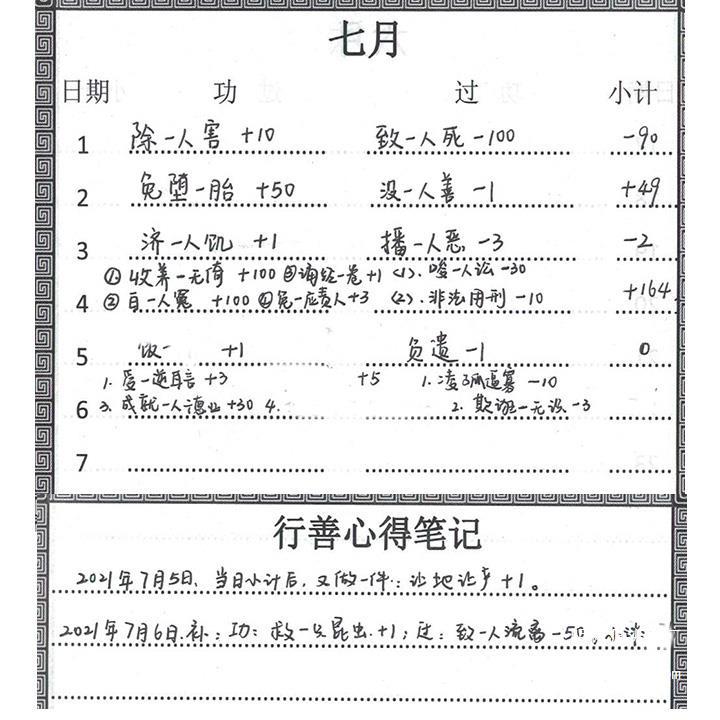 七月
日期 功 过 小计
1 除一人害 +10 致一人死 -100 -90
2 免堕一胎 +50 没一人善 -1 +49
3 济一人饥 +1 播一人恶 -3 -2
① 收养一无倚 +100 ③诵经一卷+1 (1). 唆一人讼 -30
4 ② 白一人冤 +100 ④免一债人+3 (2). 非法用刑 -10 +164
5 饭一 +1 负遗 -1 0
1. 受一逆耳言 +3 +5 1. 凌孤逼寡 -10
6 3. 成就一人德业 +30 4. 2. 欺诳一无识 -3
7
行善心得笔记
2021年7月5日、当日小计后，又做一件：让地让产 +1。
2021年7月6日.补：功：救一只昆虫.+1；过：致一人流离 -50